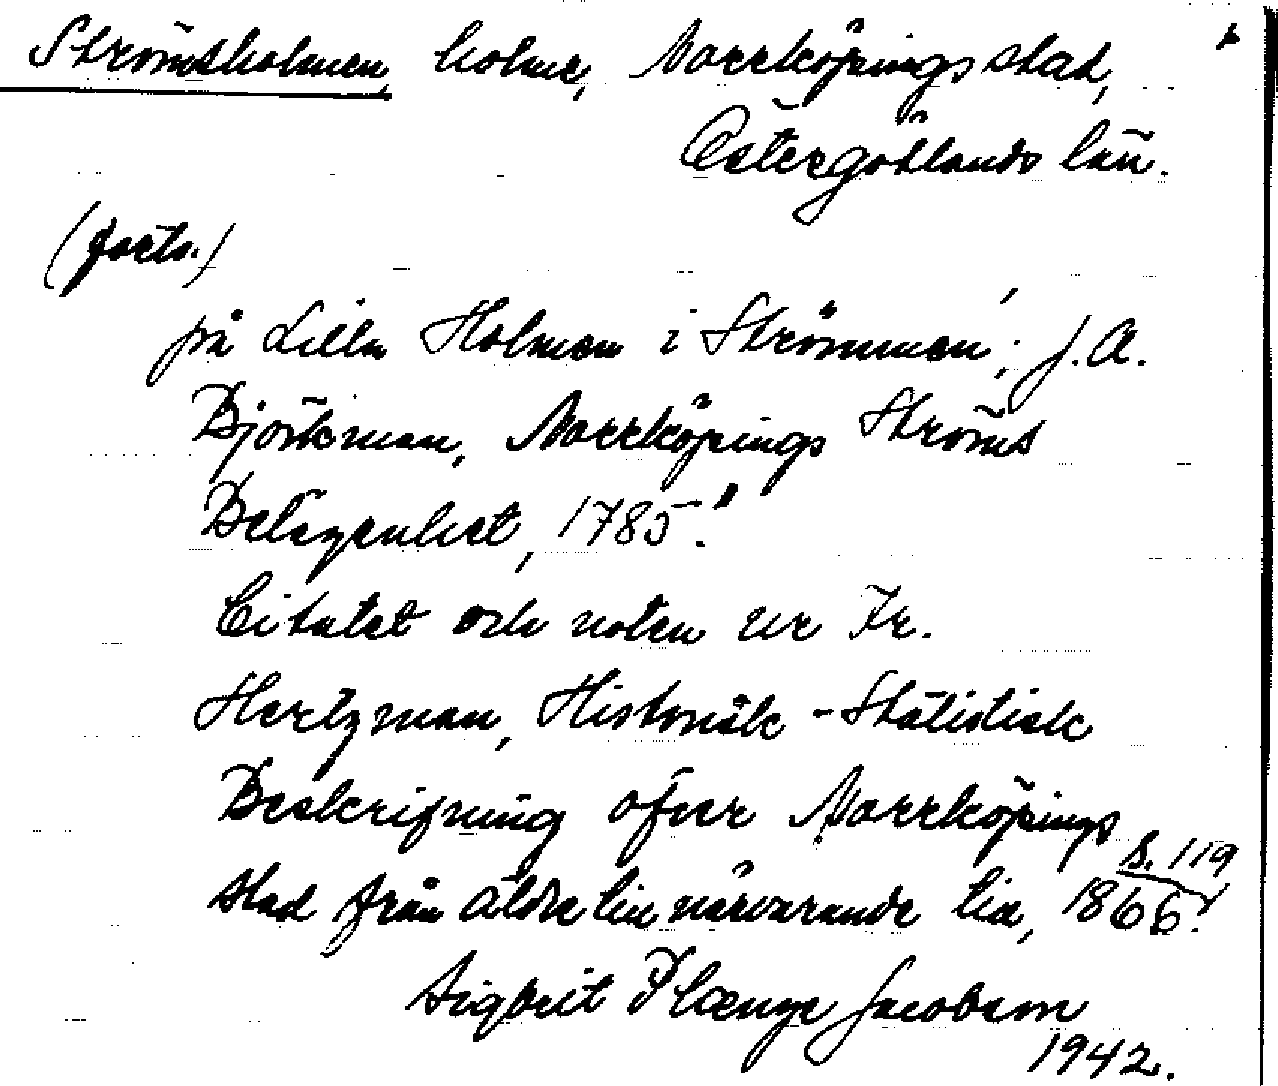 Strömsholmen, holme, Norrköpings stad,
Östergötlands län.
(forts.)
på Lilla Holmen i Strömmen'; J. A.
Björkman, Norrköpings Ströms
Belägenhet, 1785."
Citatet och noten ur Fr.
Hertzman, Historisk-Statistisk
Beskrifning öfver Norrköpings
stad från äldre till närvarande tid, 1866. s. 119
Sigbrit Plænge Jacobson
1942.